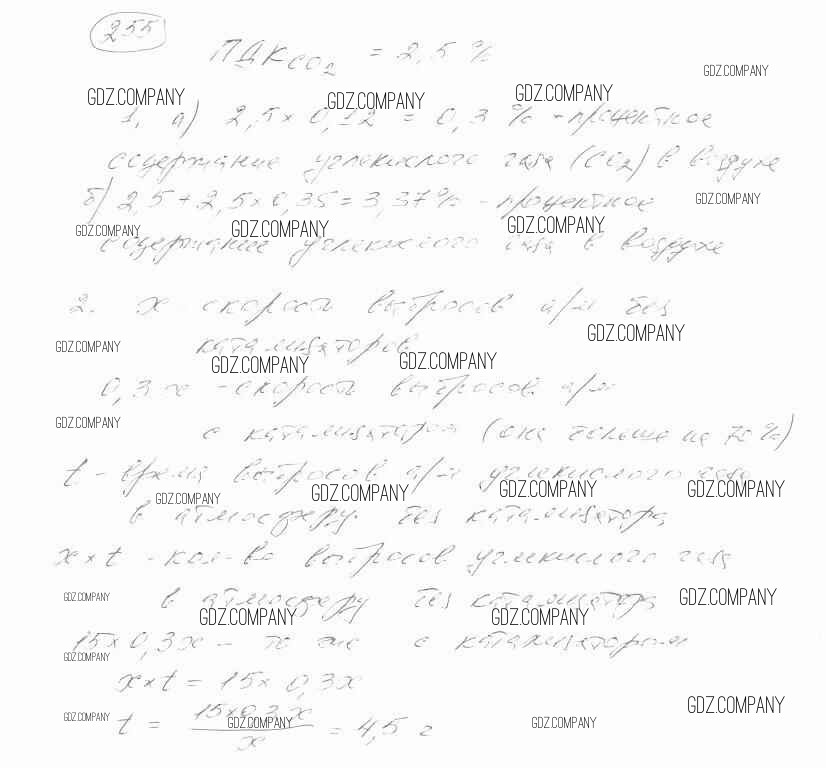 255
ПДК CO2 = 2,5 %
GDZ.COMPANY
GDZ.COMPANY GDZ.COMPANY GDZ.COMPANY
1. а) 2,5 × 0,12 = 0,3 % - процентное
содержание углекислого газа (CO2) в воздухе
б) 2,5 + 2,5 × 0,35 = 3,37 % - процентное
GDZ.COMPANY
GDZ.COMPANY GDZ.COMPANY GDZ.COMPANY
содержание углекислого газа в воздухе
2. x - скорость выбросов а/м без
GDZ.COMPANY
катализаторов
GDZ.COMPANY GDZ.COMPANY GDZ.COMPANY
0,3 x - скорость выбросов а/м
GDZ.COMPANY
с катализатором ( на 70 %)
t - время выбросов а/м углекислого газа
GDZ.COMPANY GDZ.COMPANY GDZ.COMPANY GDZ.COMPANY
в атмосферу без катализатора
x × t - кол-во выбросов углекислого газа
GDZ.COMPANY GDZ.COMPANY
в атмосферу без катализатора
GDZ.COMPANY GDZ.COMPANY
15 × 0,3x - то же с катализатором
GDZ.COMPANY
x × t = 15 × 0,3x
GDZ.COMPANY
GDZ.COMPANY GDZ.COMPANY GDZ.COMPANY
t = 15 × 0,3 x / x = 4,5 г